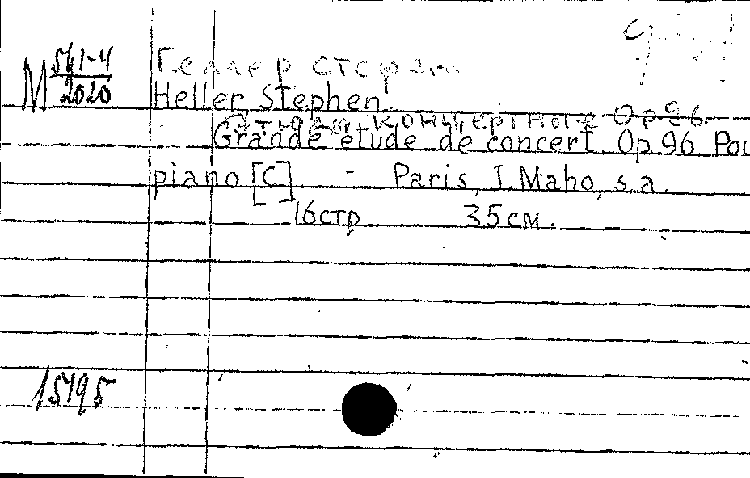 М 561-4
2020
Геллер Стефан.
Heller, Stephen.
Этюд концертный Op 96.
Grande étude de concert. Op 96 Pou
piano [C]. - Paris, J. Maho, s.a.
16стр 35см.
15495